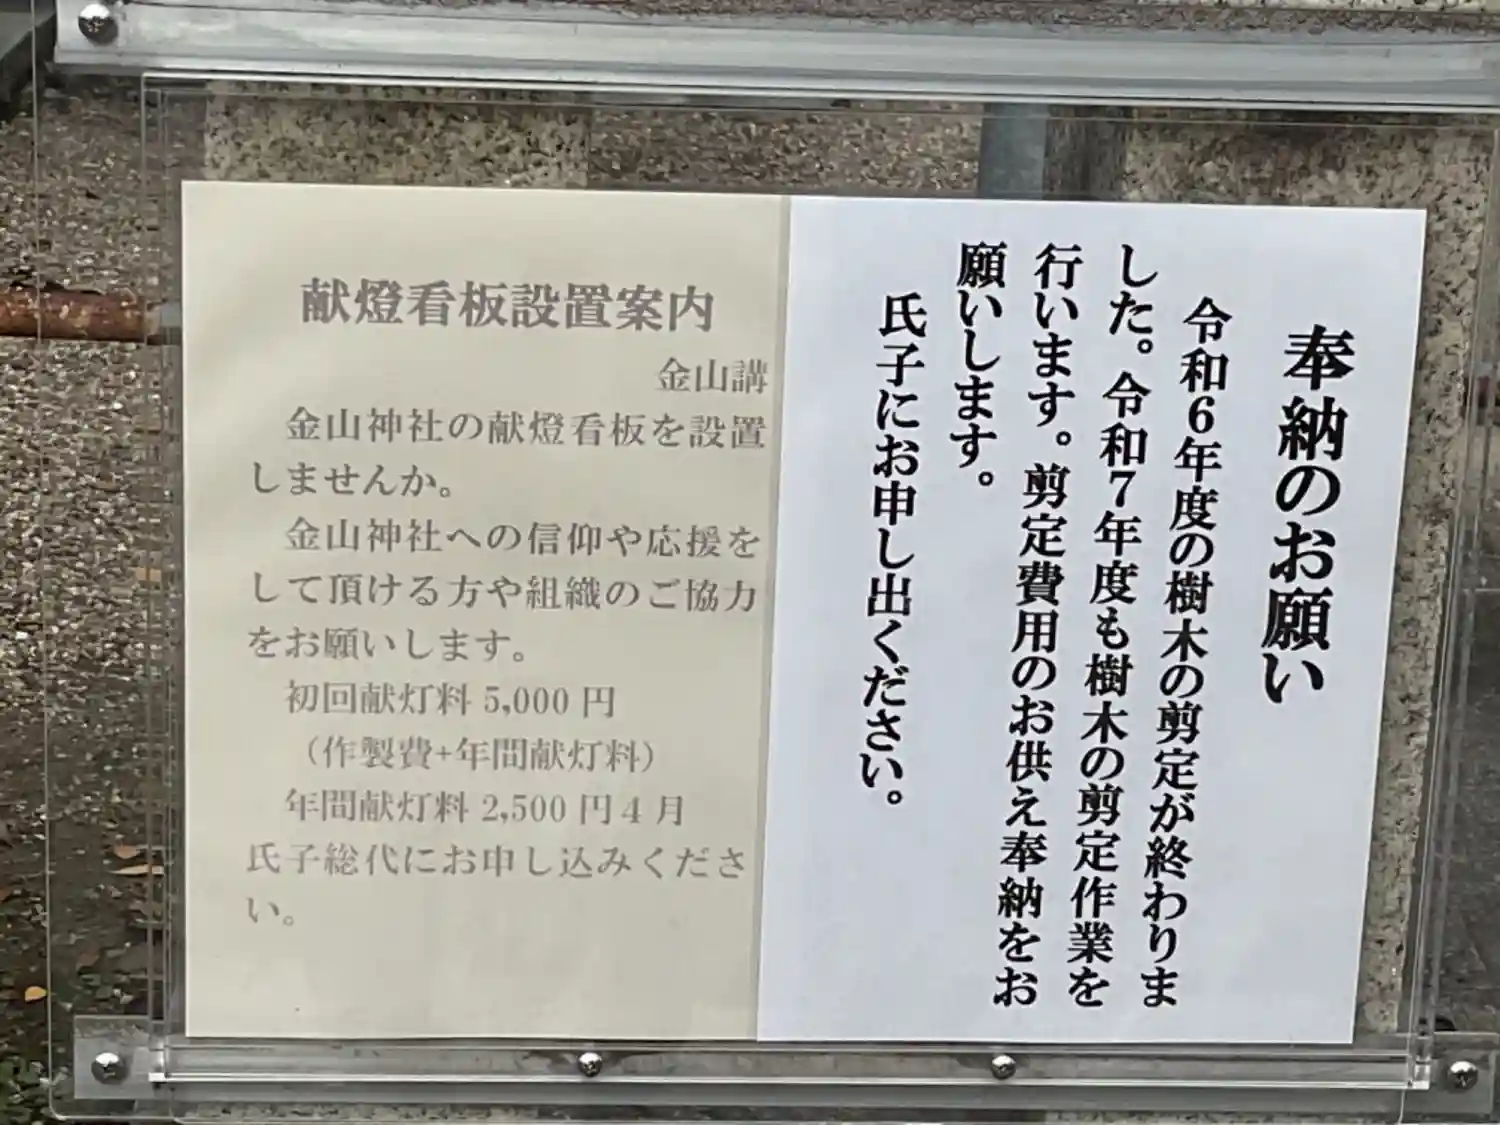 奉納のお願い
令和6年度の樹木の剪定が終わりま
した。令和7年度も樹木の剪定作業を
行います。剪定費用のお供え奉納をお
願いします。
氏子にお申し出ください。
献燈看板設置案内
金山講
金山神社の献燈看板を設置
しませんか。
金山神社への信仰や応援を
して頂ける方や組織のご協力
をお願いします。
初回献灯料 5,000 円
（作製費+年間献灯料）
年間献灯料 2,500 円 4 月
氏子総代にお申し込みくださ
い。